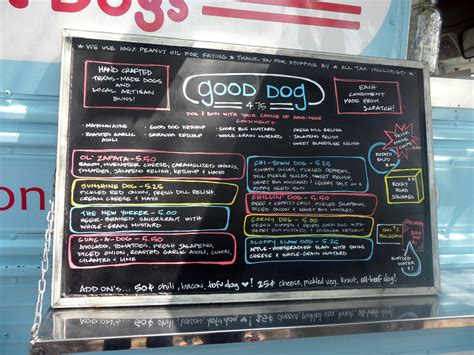 Dogs
* WE USE 100% PEANUT OIL FOR FRYING * THANK YOU FOR STOPPING BY * ALL TAX INCLUDED *
HAND CRAFTED
TEXAS-MADE DOGS
AND
LOCAL ARTISAN
BUNS!
GOOD DOG
4.75
DOG & BUN WITH YOUR CHOICE OF HAND-MADE
CONDIMENTS:
EACH
CONDIMENT
MADE FROM
SCRATCH!
• MAYONNAISE
• ROASTED GARLIC
AIOLI
• GOOD DOG KETCHUP
• SRIRACHA KETCHUP
• SHORT BUS MUSTARD
• WHOLE-GRAIN MUSTARD
• FRESH DILL RELISH
• JALAPENO RELISH
• SWEET RELISH
OL' ZAPATA - 5.50
BACON, MUENSTER CHEESE, CARAMELIZED ONIONS,
TOMATOES, JALAPENO RELISH, KETCHUP & MAYO
SUNSHINE DOG - 5.25
PICKLED RED ONION, FRESH DILL RELISH,
CREAM CHEESE & MAYO
THE NEW YORKER - 5.00
BEER-BRAISED SAUERKRAUT WITH
WHOLE-GRAIN MUSTARD
GUAC-A-DOG - 5.50
AVOCADO, TOMATOES, FRESH JALAPENO,
DICED ONION, ROASTED GARLIC AIOLI, CUMIN,
CILANTRO & LIME
CHI-TOWN DOG - 5.25
TOMATO SLICES, PICKLED PEPPERS,
DILL PICKLE SLICES, SWEET RELISH,
SHORT BUS MUSTARD, CELERY SALT ON A
POPPY SEED BUN
CHILLIN' DOG - 5.50
CHILI, CHEESE, DICED ONION &
SHORT BUS MUSTARD
CORNY DOG - 5.00
SHORT BUS MUSTARD
SLOPPY SLAW DOG - 5.25
APPLE-HORSERADISH SLAW WITH
CHEESE & WHOLE-GRAIN MUSTARD
POTATO
SALAD
CHIPS
ROCKY
ROAD
SQUARES
SAN
PELLEGRINO
BOTTLED
WATER
$1
ADD ON'S... 50¢ chili, bacon, tofu dog ♥! 25¢ cheese, pickled veg, kraut, all-beef dog!
on